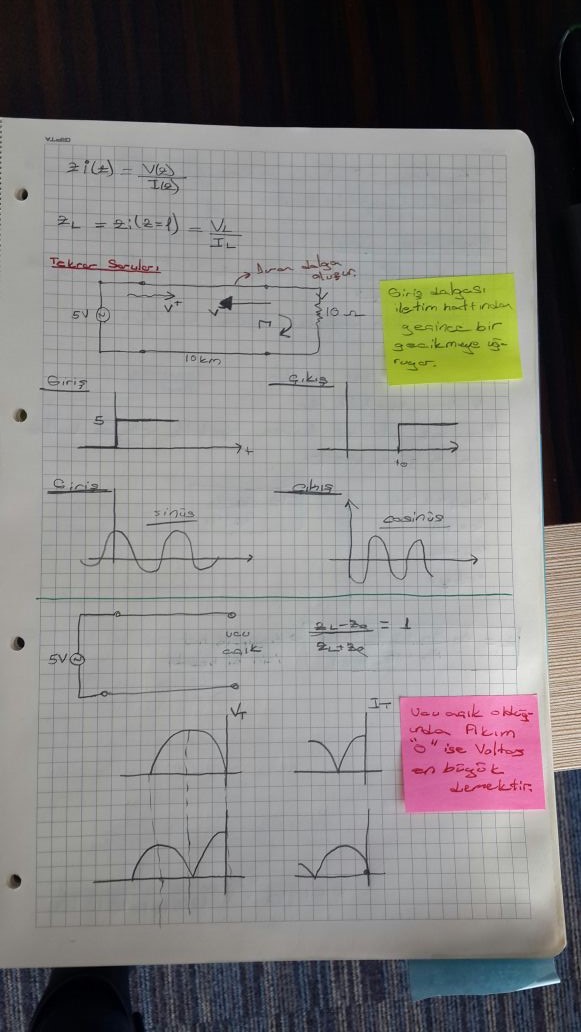 zi(z) = V(z)/I(z)
ZL = zi(z=l) = VL/IL
Tekrar Soruları
Duran dalga
oluşur.
5V
V+
V-
Γ
10 Ω
10 km
Giriş dalgası
iletim hattından
geçince bir
gecikmeye uğ-
ruyor.
Giriş
5
t
Çıkış
to
Giriş
sinüs
Çıkış
cosinüs
5V
ucu
açık
ZL-Z0/ZL+Z0 = 1
VT
IT
Ucu açık olduğ-
undan Akım
"0" ise Voltaj
en büyük
demektir.